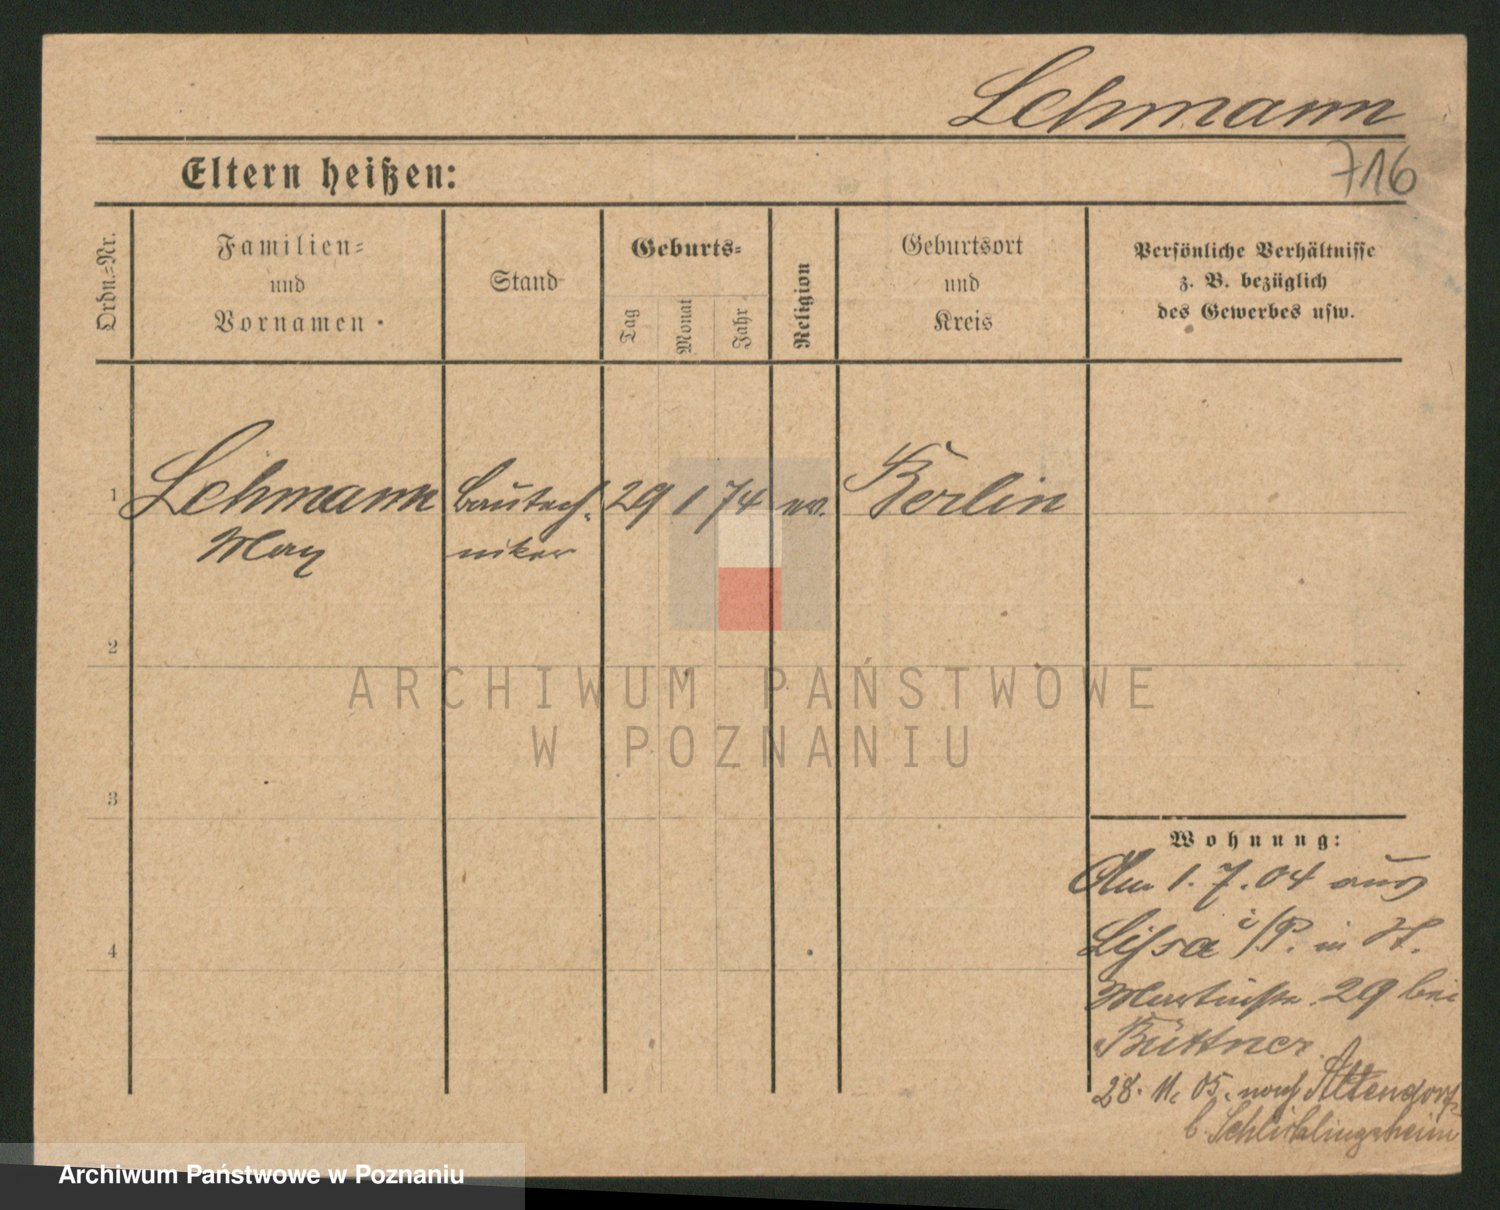 Lehmann
716
Eltern heißen:
Ordn.-Nr.
Familien-
und
Vornamen
Stand
Geburts-
Tag
Monat
Jahr
Religion
Geburtsort
und
Kreis
Persönliche Verhältnisse
z. B. bezüglich
des Gewerbes usw.
1 Lehmann Bautech- 29 1 74 ev. Berlin
Max niker
2
ARCHIWUM PAŃSTWOWE
W POZNANIU
3
Wohnung:
Am 1.7.04 aus
Lissa i/P. in St.
4
Martinstr. 29 bei
Büttner.
28. 11. 05. nach Altendorf
b. Schlichtingsheim
Archiwum Państwowe w Poznaniu